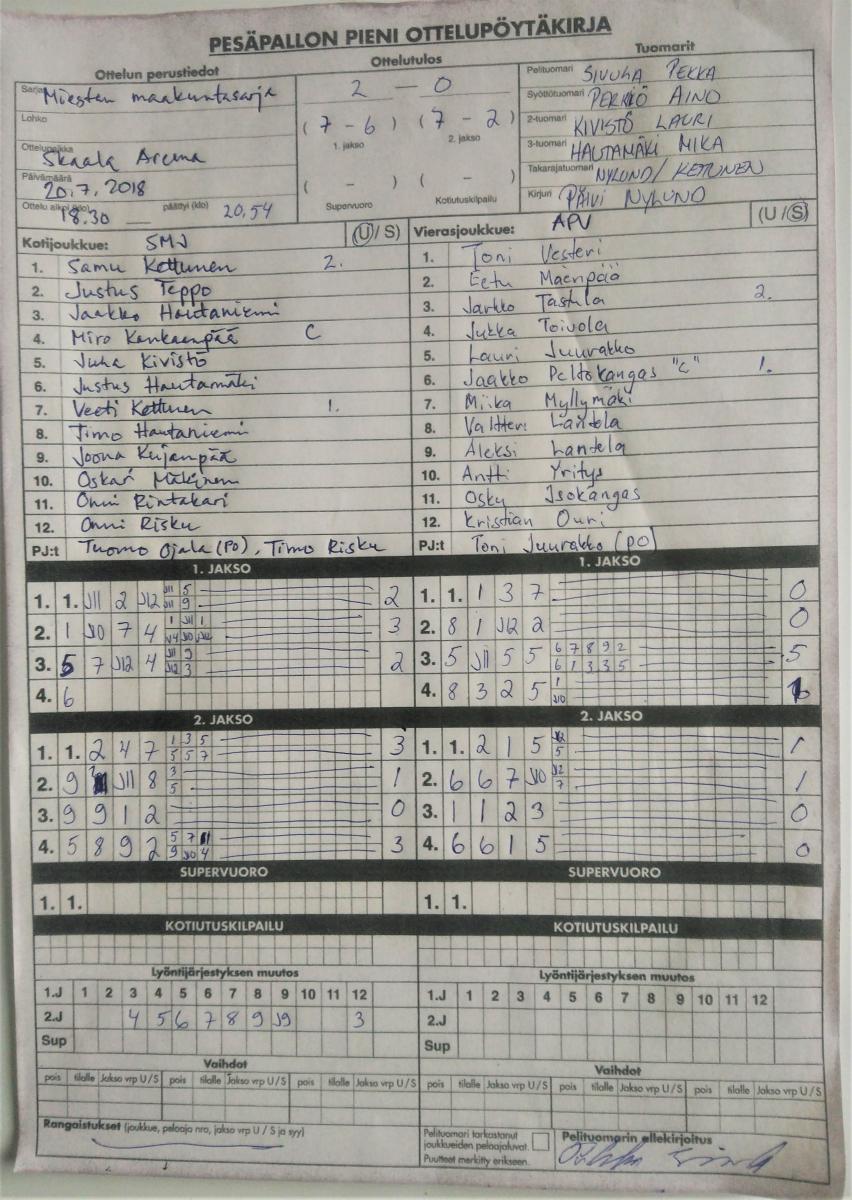 PESÄPALLON PIENI OTTELUPÖYTÄKIRJA
Ottelun perustiedot
Sarja Miesten maakuntasarja
Lohko
Ottelupaikka Skaala Areena
Päivämäärä 20.7.2018
Ottelu alkoi (klo) 18.30 päättyi (klo) 20,54
Ottelutulos
2 - 0
(7 - 6) (7 - 2)
1. jakso 2. jakso
( - ) ( - )
Supervuoro Kotiutuskilpailu
Tuomarit
Pelituomari SIVULA PEKKA
Syöttötuomari PERKIÖ AINO
2-tuomari KIVISTÖ LAURI
3-tuomari HAUTAMÄKI MIKA
Takarajatuomari NYLUND/KETUNEN
Kirjuri PÄIVI NYLUND
Kotijoukkue: SMJ (U/S)
1. Samu Kettunen 2.
2. Justus Teppo
3. Jaakko Hautaniemi
4. Miro Kankaanpää C
5. Juha Kivistö
6. Justus Hautamäki
7. Veeti Kettunen 1.
8. Timo Hautaniemi
9. Joona Keijanpää
10. Oskari Mäkinen
11. Onni Rintakari
12. Onni Risku
PJ:t Tuomo Ojala (PO), Timo Risku
Vierasjoukkue: APV (U/S)
1. Toni Vesteri
2. Eetu Mäenpää
3. Jarkko Tastula 2.
4. Jukka Toivola
5. Lauri Juurakko
6. Jaakko Peltokangas "C" 1.
7. Miika Myllymäki
8. Valtteri Lantela
9. Aleksi Lantela
10. Antti Yritys
11. Osku Isokangas
12. Kristian Ouri
PJ:t Toni Juurakko (PO)
1. JAKSO
1. 1. J11 2 J12 J11 5 J11 9 2
2. 1 J10 7 4 1 J11 1 J4 J10 J12 3
3. 5 7 J12 4 J11 9 J12 3 2
4. 6
1. JAKSO
1. 1. 1 3 7 0
2. 8 1 J12 2 0
3. 5 J11 5 5 6 7 8 9 2 6 1 3 3 5 5
4. 8 3 2 5 1 J10 1
2. JAKSO
1. 1. 2 4 7 1 3 5 5 5 7 3
2. 9 J11 8 3 5 1
3. 9 9 1 2 0
4. 5 8 9 2 5 7 9 J10 4 3
2. JAKSO
1. 1. 2 1 5 J12 5 1
2. 6 6 7 J10 J2 7 1
3. 1 1 2 3 0
4. 6 6 1 5 0
SUPERVUORO
1. 1.
SUPERVUORO
1. 1.
KOTIUTUSKILPAILU
KOTIUTUSKILPAILU
Lyöntijärjestyksen muutos
1.J 1 2 3 4 5 6 7 8 9 10 11 12
2.J 4 5 6 7 8 9 J9 3
Sup
Lyöntijärjestyksen muutos
1.J 1 2 3 4 5 6 7 8 9 10 11 12
2.J
Sup
Vaihdot
pois tilalle Jakso vrp U/S pois tilalle Jakso vrp U/S pois tilalle Jakso vrp U/S
Vaihdot
pois tilalle Jakso vrp U/S pois tilalle Jakso vrp U/S pois tilalle Jakso vrp U/S
Rangaistukset (joukkue, pelaaja nro, jakso vrp U / S ja syy)
Pelituomari tarkastanut
joukkueiden pelaajaluvat.
Puutteet merkitty erikseen.
Pelituomarin allekirjoitus